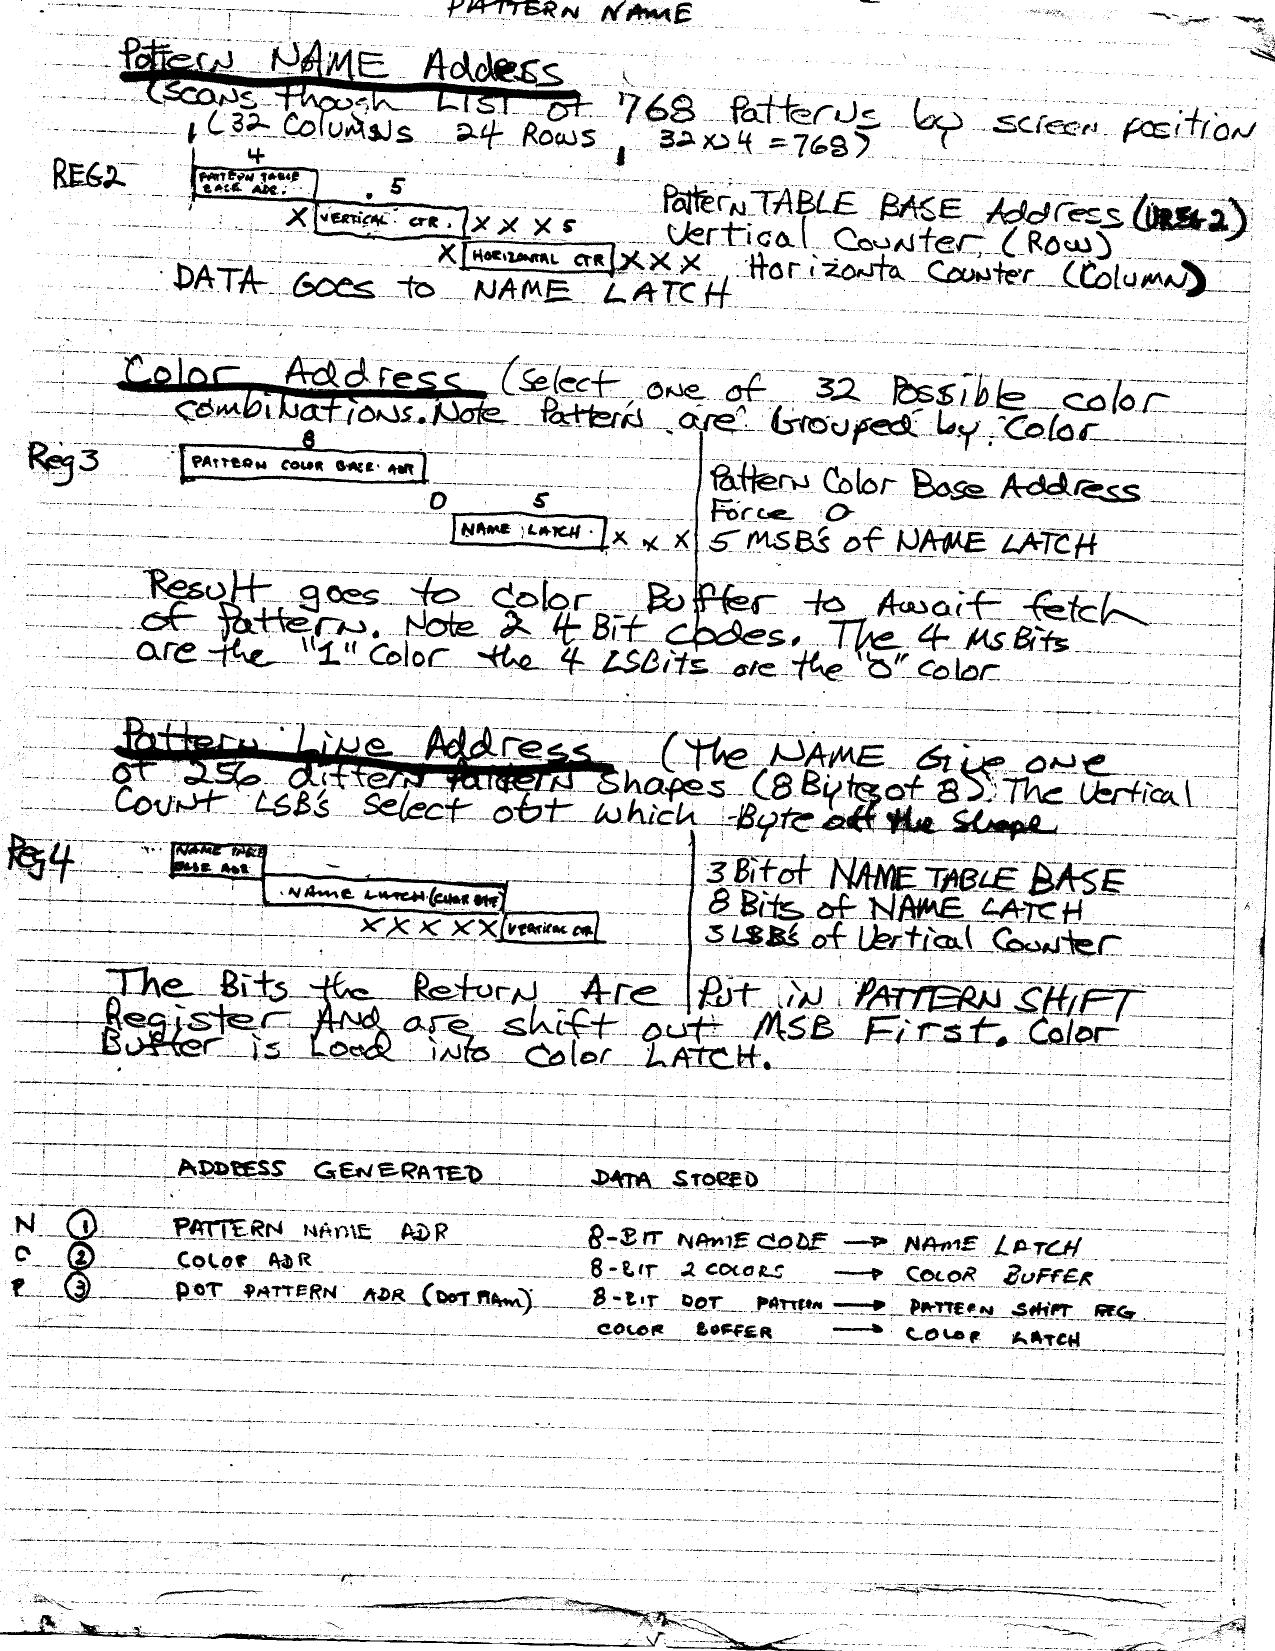 PATTERN NAME
Pattern NAME Address
(Scans though LIST of 768 Patterns by screen position
(32 Columns 24 Rows, 32x24 = 768)
4
REG2
PATTERN TABLE
BASE ADR.
5
X VERTICAL CTR. X X X 5
X HORIZONTAL CTR X X X
Pattern TABLE BASE Address (VREG 2)
Vertical Counter (Row)
Horizonta Counter (Column)
DATA Goes to NAME LATCH
Color Address (Select one of 32 Possible color
combinations. Note Pattern are Grouped by Color
8
Reg3
PATTERN COLOR BASE ADR
0 5
NAME LATCH X X X
Pattern Color Base Address
Force 0
5 MSB's of NAME LATCH
Result goes to color Buffer to Await fetch
of Pattern. Note 2 4 Bit Codes. The 4 MsBits
are the "1" Color the 4 LSBits are the "0" color
Pattern Line Address (The NAME Give one
of 256 differn Pattern Shapes (8 Bytes of 8). The Vertical
Count LSB's Select obt which Byte off the Shape
Reg4
BASE ADR
NAME LATCH
X X X X X VERTICAL CTR
3 Bit of NAME TABLE BASE
8 Bits of NAME LATCH
3 LSB's of Vertical Counter
The Bits the Return Are Put in PATTERN SHIFT
Register And are shift out MSB First. Color
Buffer is Load into Color LATCH.
ADDRESS GENERATED DATA STORED
N 1 PATTERN NAME ADR 8-BIT NAME CODE → NAME LATCH
C 2 COLOR ADR 8-BIT 2 COLORS → COLOR BUFFER
P 3 DOT PATTERN ADR 8-BIT DOT PATTERN → PATTERN SHIFT REG
COLOR BUFFER → COLOR LATCH